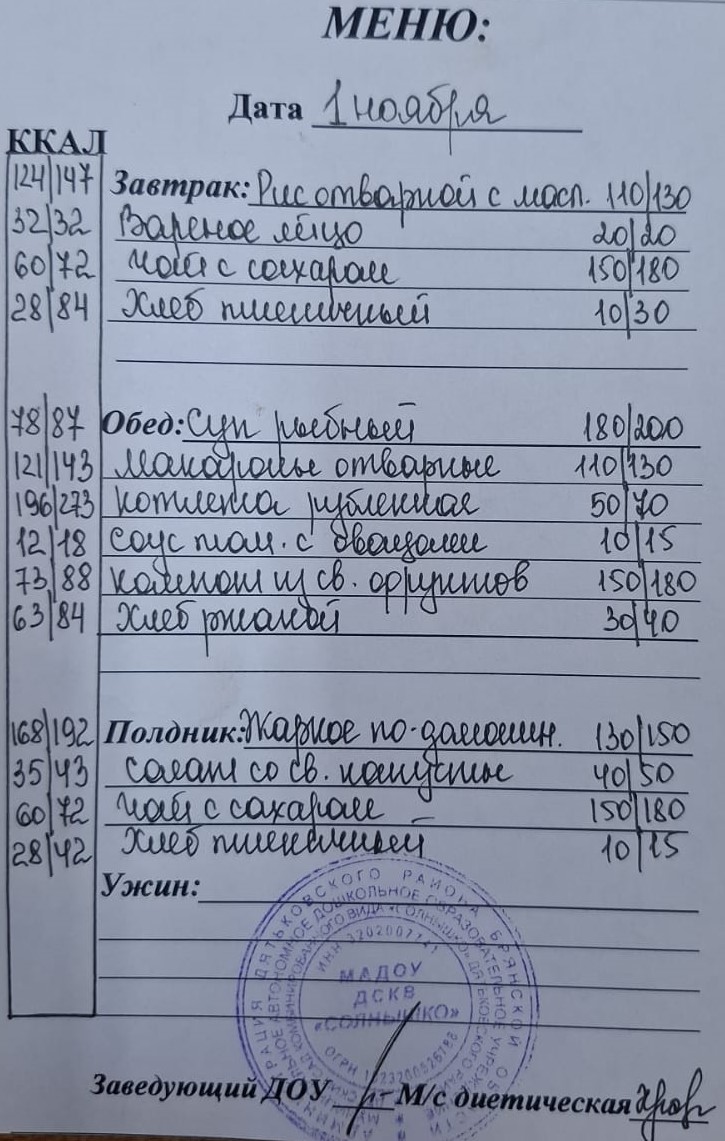 МЕНЮ:
Дата 1 ноября
ККАЛ
124|147 Завтрак: Рис отварной с масл. 110|130
32|32 Вареное яйцо 20|20
60|72 Чай с сахаром 150|180
28|84 Хлеб пшеничный 10|30
78|87 Обед: Суп рыбный 180|200
121|143 Макароны отварные 110|130
196|273 Котлета рубленная 50|70
12|18 Соус том. с овощами 10|15
73|88 Компот из св. фруктов 150|180
63|84 Хлеб ржаной 30|40
168|192 Полдник: Жаркое по-домашн. 130|150
35|43 Салат со св. капусты 40|50
60|72 Чай с сахаром 150|180
28|42 Хлеб пшеничный 10|15
Ужин:
РАЦИЯ ДЯТЬКОВСКОГО РАЙОНА БРЯНСКОЙ
АВТОНОМНОЕ ДОШКОЛЬНОЕ ОБРАЗОВАТЕЛЬНОЕ
КОМБИНИРОВАННОГО ВИДА «СОЛНЫШКО»
ИНН 3202007141
МАДОУ
ДСКВ
«СОЛНЫШКО»
ОГРН
Заведующий ДОУ М/с диетическая